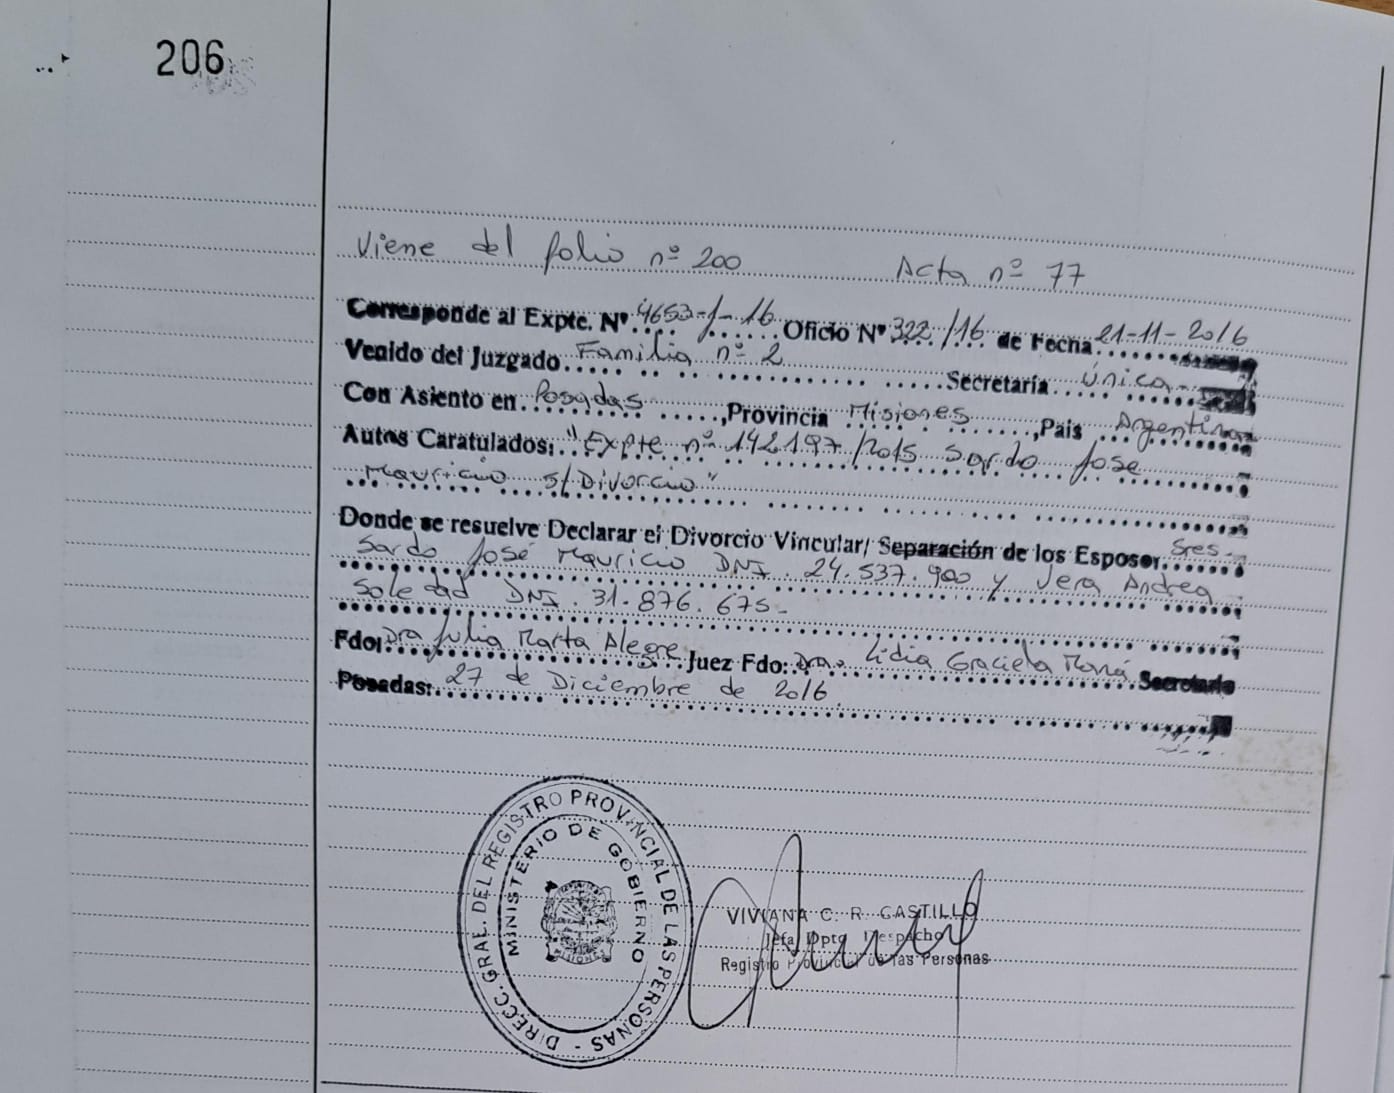 206
Viene del folio nº 200 Acta nº 77
Corresponde al Expte. Nº 4653-J-16 Oficio Nº 322/16 de Fecha 21-11-2016
Venido del Juzgado Familia nº 2 Secretaría Única
Con Asiento en Posadas, Provincia Misiones, País Argentina
Autos Caratulados: "Expte nº 142197/2015 Sardo Jose
Mauricio s/Divorcio"
Donde se resuelve Declarar el Divorcio Vincular/ Separación de los Esposos Sres.
Sardo José Mauricio DNI 24.537.900 y Vera Andrea
Soledad DNI. 31.876.675-
Fdo: Dra Julia Marta Alegre Juez Fdo: Dra. Lidia Graciela Secretario
Posadas: 27 de Diciembre de 2016.
DIRECC. GRAL. DEL REGISTRO PROVINCIAL DE LAS PERSONAS -
MINISTERIO DE GOBIERNO
MISIONES
VIVIANA C. R. CASTILLO
Jefa Dpto Despacho
Registro Provincial de las Personas